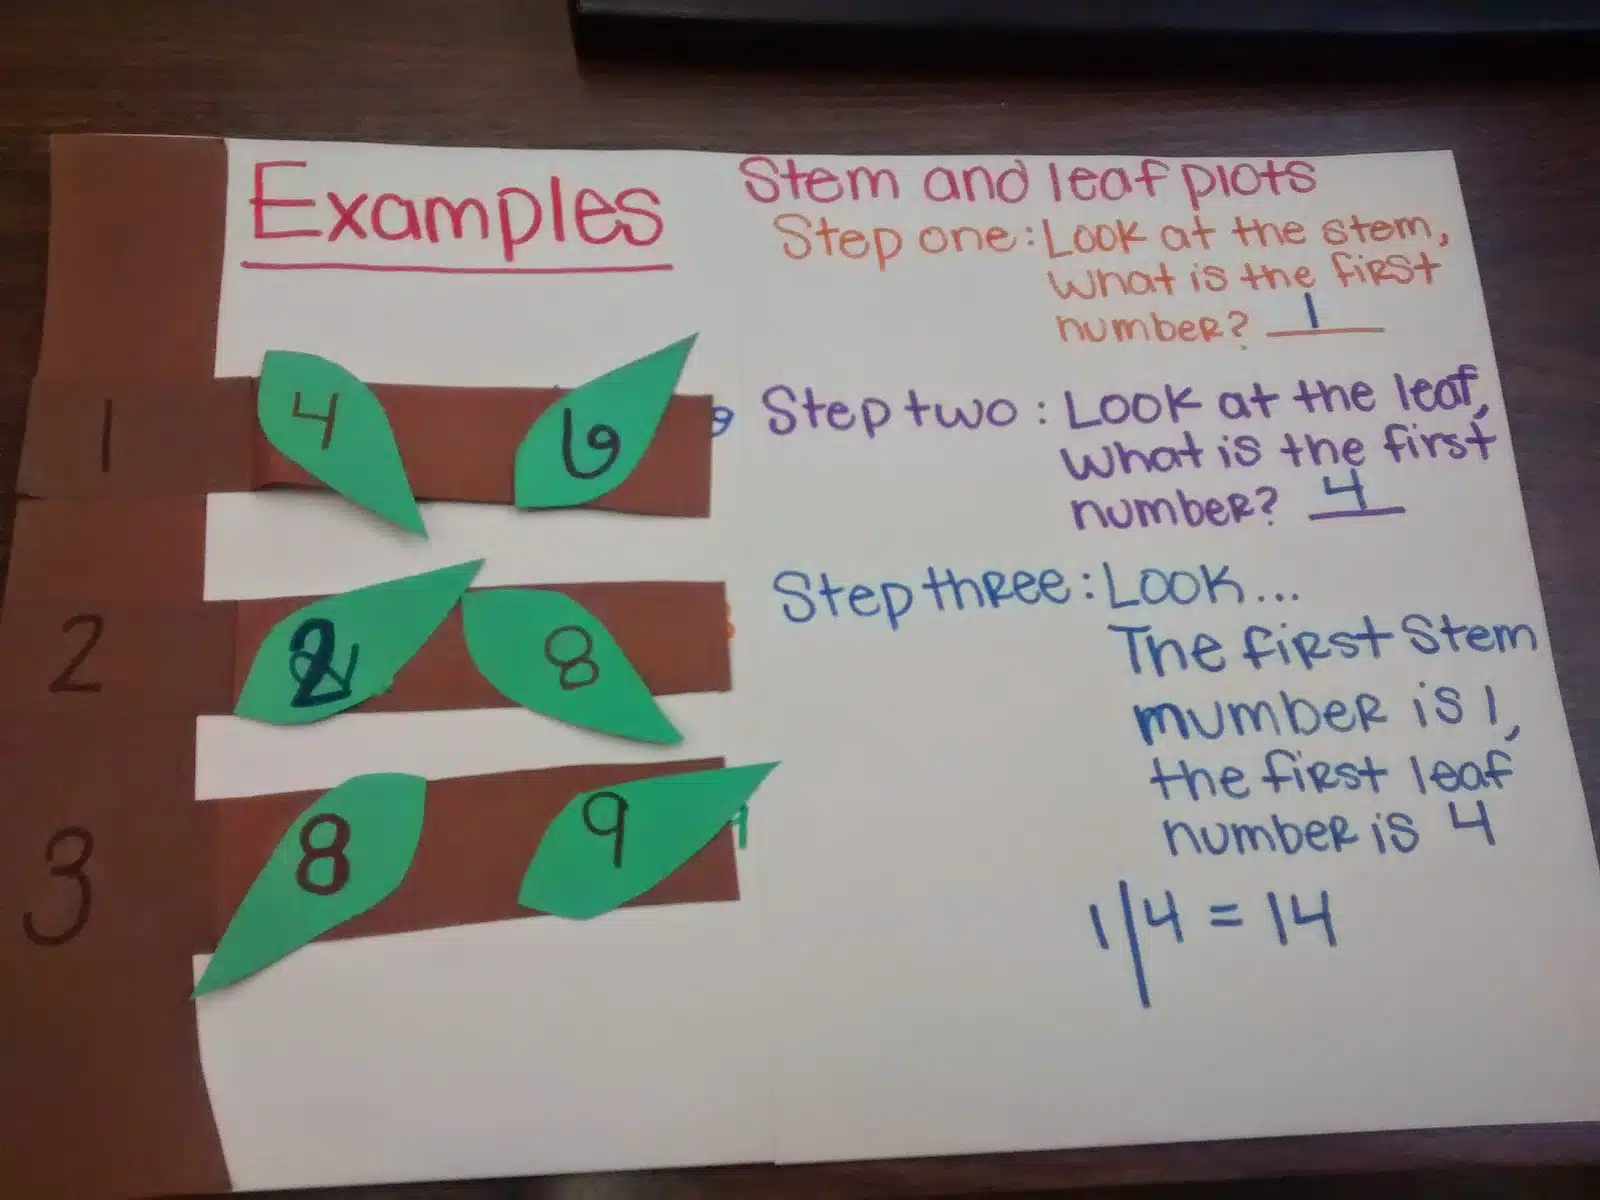 Examples
1 4 6
2 2 8
3 8 9
Stem and leaf plots
Step one: Look at the stem,
what is the first
number? 1
Step two: Look at the leaf,
what is the first
number? 4
Step three: Look...
The first Stem
mumber is 1,
the first leaf
number is 4
1|4 = 14